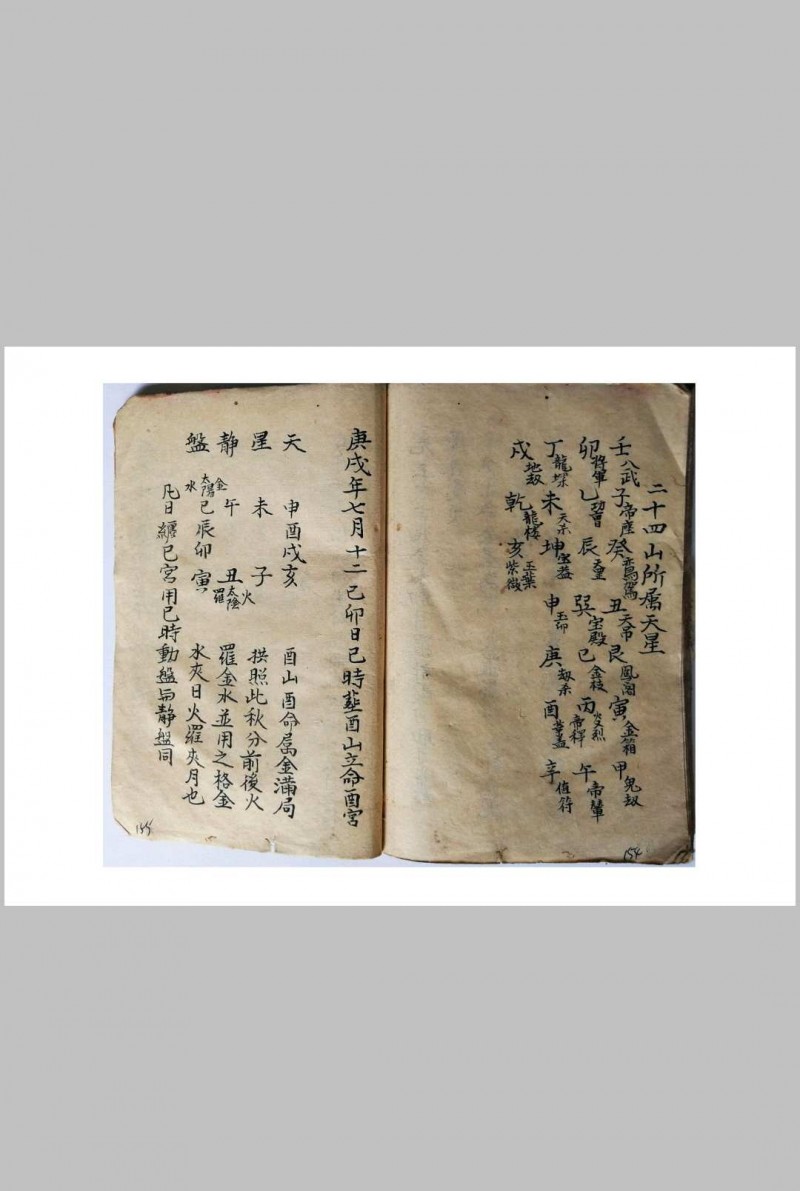 二十四山所属天星
壬八武子帝座癸鸞駕丑天吊艮鳳閣寅金箱甲鬼劫
卯將軍乙辰天皇巽宝殿巳金枝丙帝釋午帝輦
丁龍墀未天杀坤宝盖申玉印庚劫杀酉華盖辛值符
戌地劫乾龍楼亥紫微玉葉
154
庚戌年七月十二己卯日巳時塟酉山立命酉宮
天 申酉戌亥 酉山酉命属金滿局
星 未 子火 拱照此秋分前後火
静 午金 丑太陰羅 羅金水並用之格金
盤 太陽水巳辰卯寅 水夾日火羅夾月也
凡日纏巳宮用巳時動盤与静盤同
155